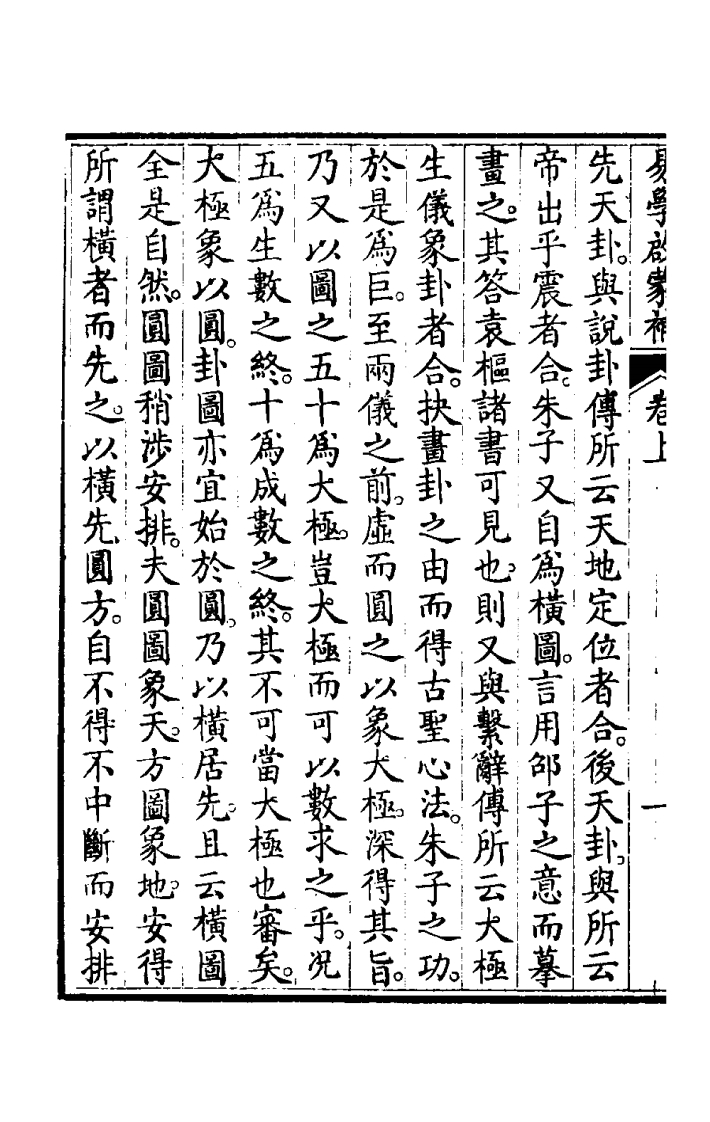 易學啟蒙補 卷上 一
先天卦。與說卦傳所云天地定位者合。後天卦。與所云
帝出乎震者合。朱子又自為橫圖。言用邵子之意而摹
畫之。其答袁樞諸書可見也。則又與繫辭傳所云大極
生儀象卦者合。抉畫卦之由而得古聖心法。朱子之功。
於是為巨。至兩儀之前。虛而圓之以象大極。深得其旨。
乃又以圖之五十為大極。豈大極而可以數求之乎。況
五為生數之終。十為成數之終。其不可當大極也審矣。
大極象以圓。卦圖亦宜始於圓。乃以橫居先。且云橫圖
全是自然。圓圖稍涉安排。夫圓圖象天。方圖象地。安得
所謂橫者而先之。以橫先圓方。自不得不中斷而安排